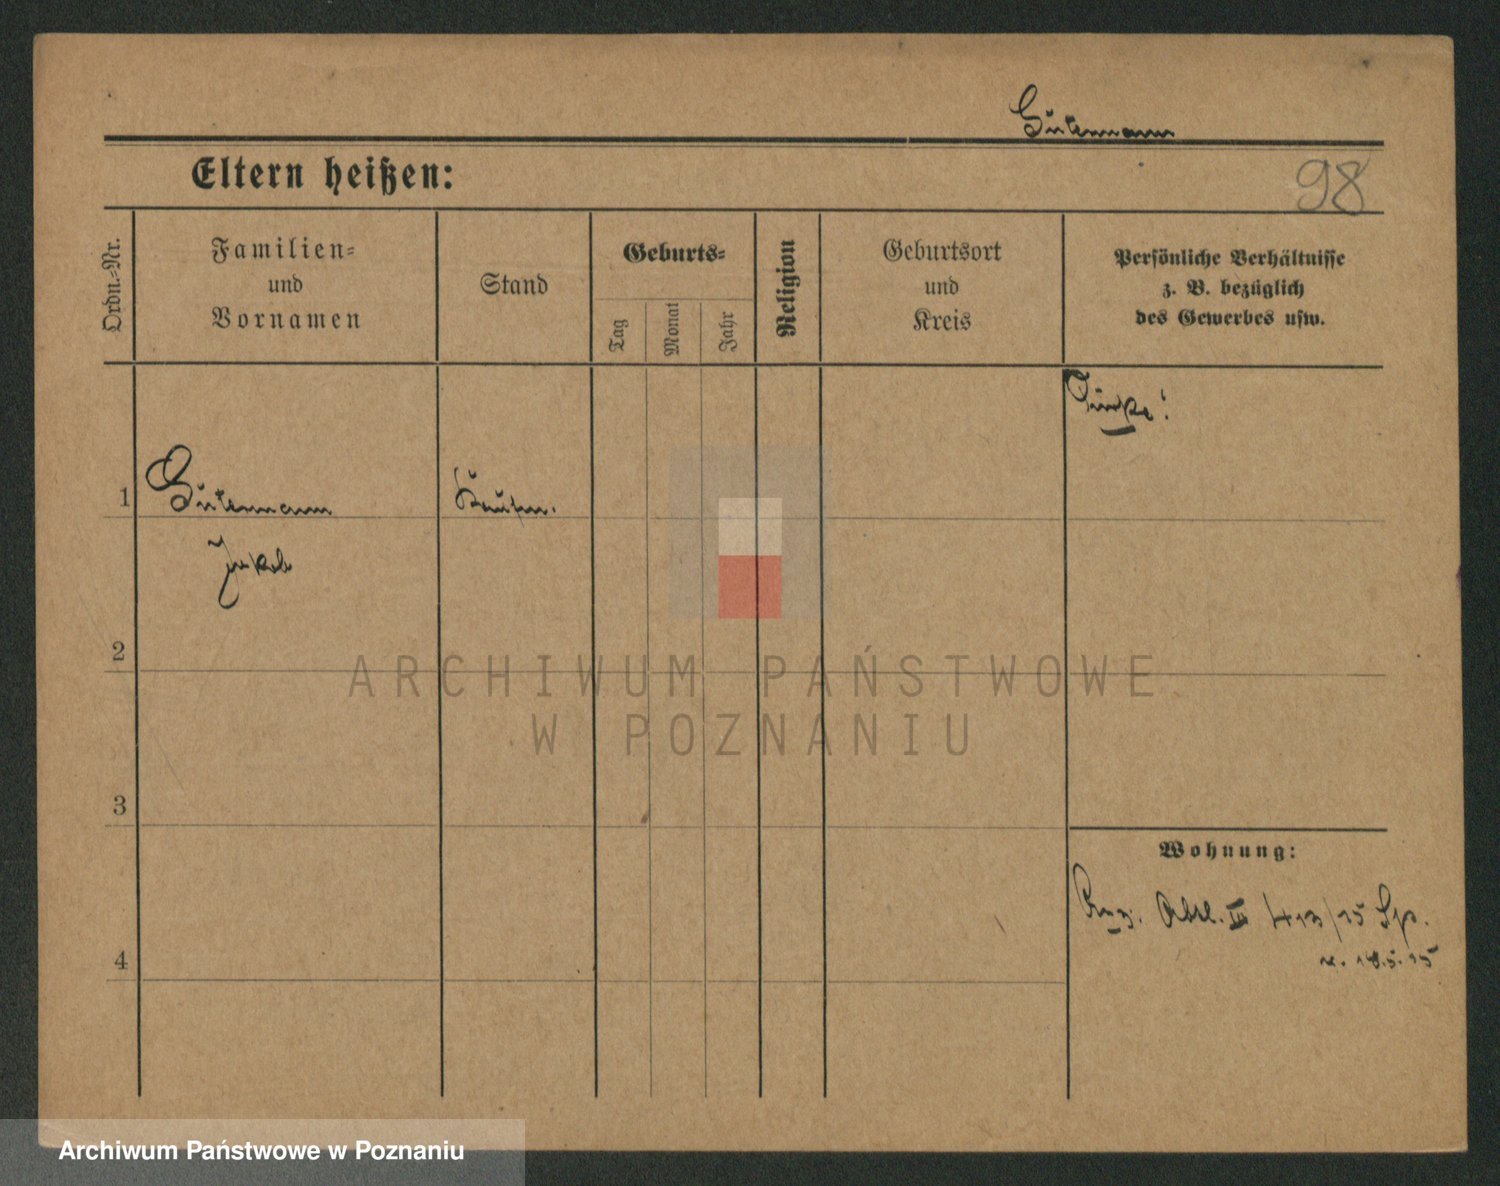 Gutermann
Eltern heißen:
98
Ordn.-Nr.
Familien-
und
Vornamen
Stand
Geburts-
Tag
Monat
Jahr
Religion
Geburtsort
und
Kreis
Persönliche Verhältnisse
z. B. bezüglich
des Gewerbes usw.
1
Gutermann
Kaufm.
Jakob
2
3
4
Wohnung:
Abtl. III
18.5.15
ARCHIWUM PAŃSTWOWE
W POZNANIU
Archiwum Państwowe w Poznaniu